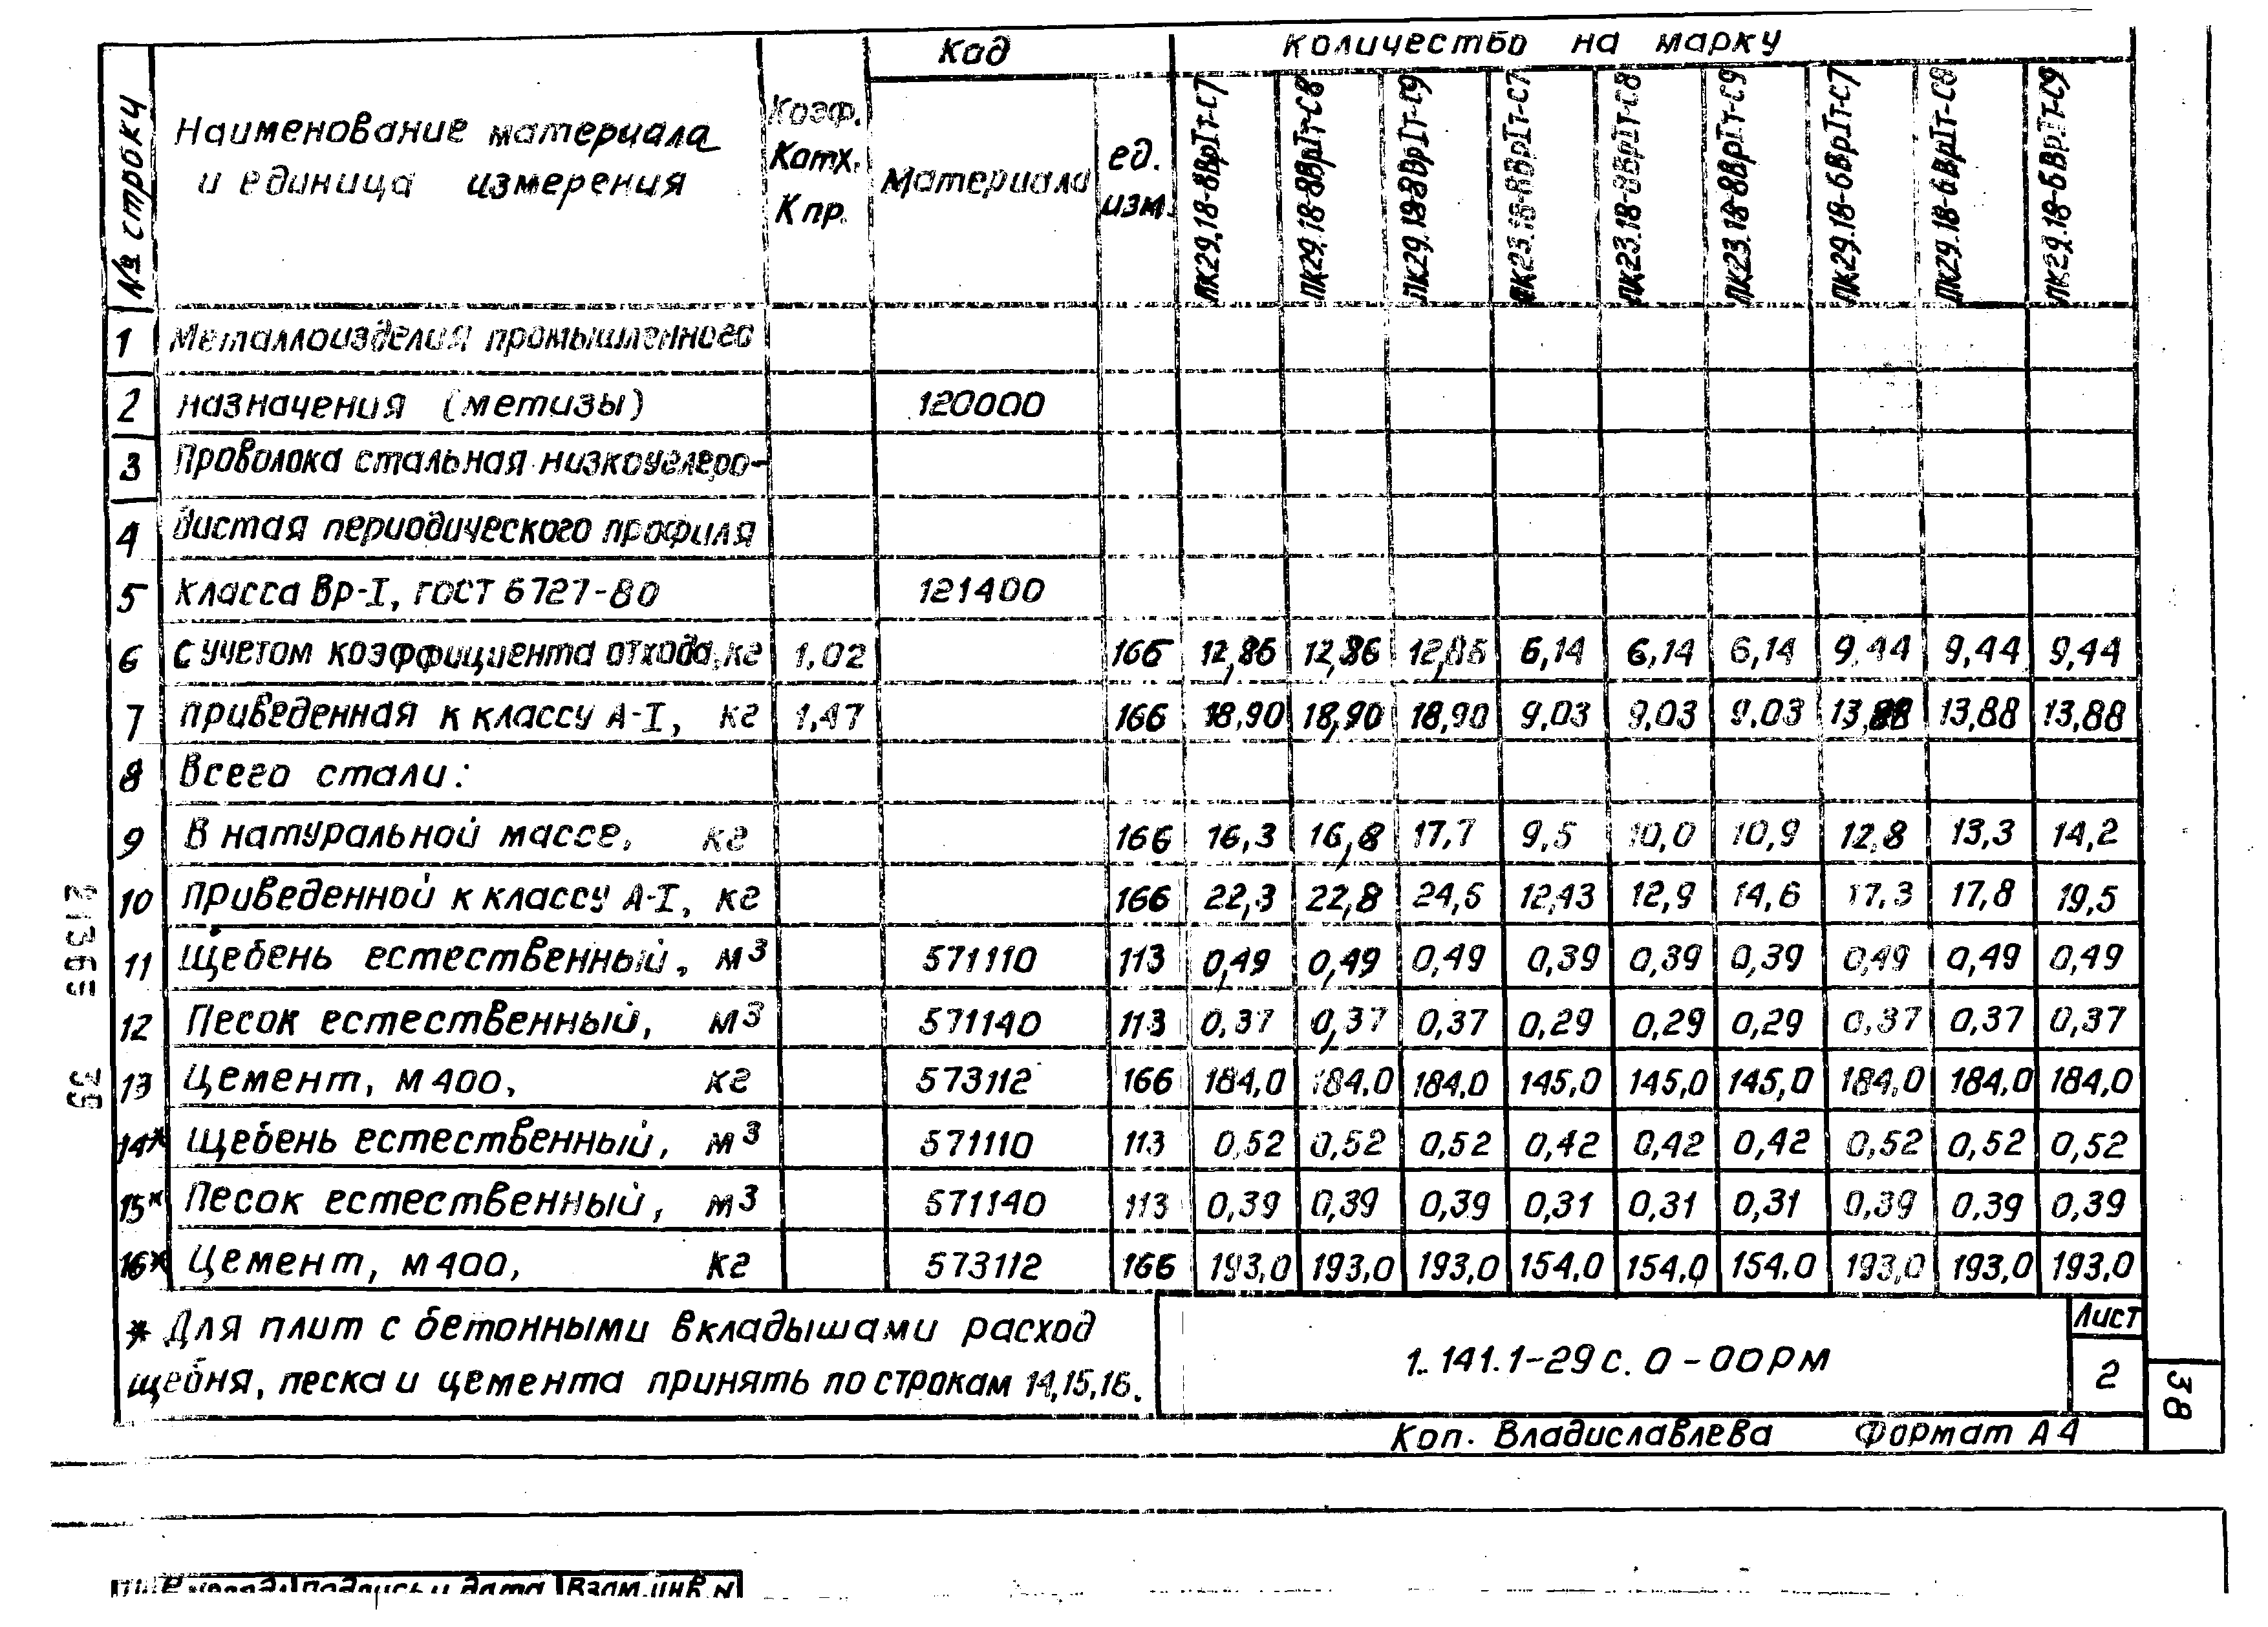 Код
Количество на марку
№ строки
Наименование материала
и единица измерения
Коэф.
Котх.
Кпр.
Материала
ед.
изм.
ПК29.18-8ВрIт-С7
ПК29.18-8ВрIт-С8
ПК29.18-8ВрIт-С9
ПК23.18-8ВрIт-С7
ПК23.18-8ВрIт-С8
ПК23.18-8ВрIт-С9
ПК29.18-6ВрIт-С7
ПК29.18-6ВрIт-С8
ПК29.18-6ВрIт-С9
1 Металлоизделия промышленного
2 назначения (метизы) 120000
3 Проволока стальная низкоуглеро-
4 дистая периодического профиля
5 класса Вр-I, ГОСТ 6727-80 121400
6 с учетом коэффициента отхода, кг 1,02 166 12,86 12,86 12,86 6,14 6,14 6,14 9,44 9,44 9,44
7 приведенная к классу А-I, кг 1,47 166 18,90 18,90 18,90 9,03 9,03 9,03 13,88 13,88 13,88
8 Всего стали:
9 В натуральной массе, кг 166 16,3 16,8 17,7 9,5 10,0 10,9 12,8 13,3 14,2
10 приведенной к классу А-I, кг 166 22,3 22,8 24,5 12,43 12,9 14,6 17,3 17,8 19,5
11 Щебень естественный, м3 571110 113 0,49 0,49 0,49 0,39 0,39 0,39 0,49 0,49 0,49
12 Песок естественный, м3 571140 113 0,37 0,37 0,37 0,29 0,29 0,29 0,37 0,37 0,37
13 Цемент, М400, кг 573112 166 184,0 184,0 184,0 145,0 145,0 145,0 184,0 184,0 184,0
14* Щебень естественный, м3 571110 113 0,52 0,52 0,52 0,42 0,42 0,42 0,52 0,52 0,52
15* Песок естественный, м3 571140 113 0,39 0,39 0,39 0,31 0,31 0,31 0,39 0,39 0,39
16* Цемент, М400, кг 573112 166 193,0 193,0 193,0 154,0 154,0 154,0 193,0 193,0 193,0
* Для плит с бетонными вкладышами расход
щебня, песка и цемента принять по строкам 14,15,16.
1.141.1-29с.0-00РМ
Лист
2
38
Коп. Владиславлева Формат А4
21365 39
подпись и дата Взам.инв.N